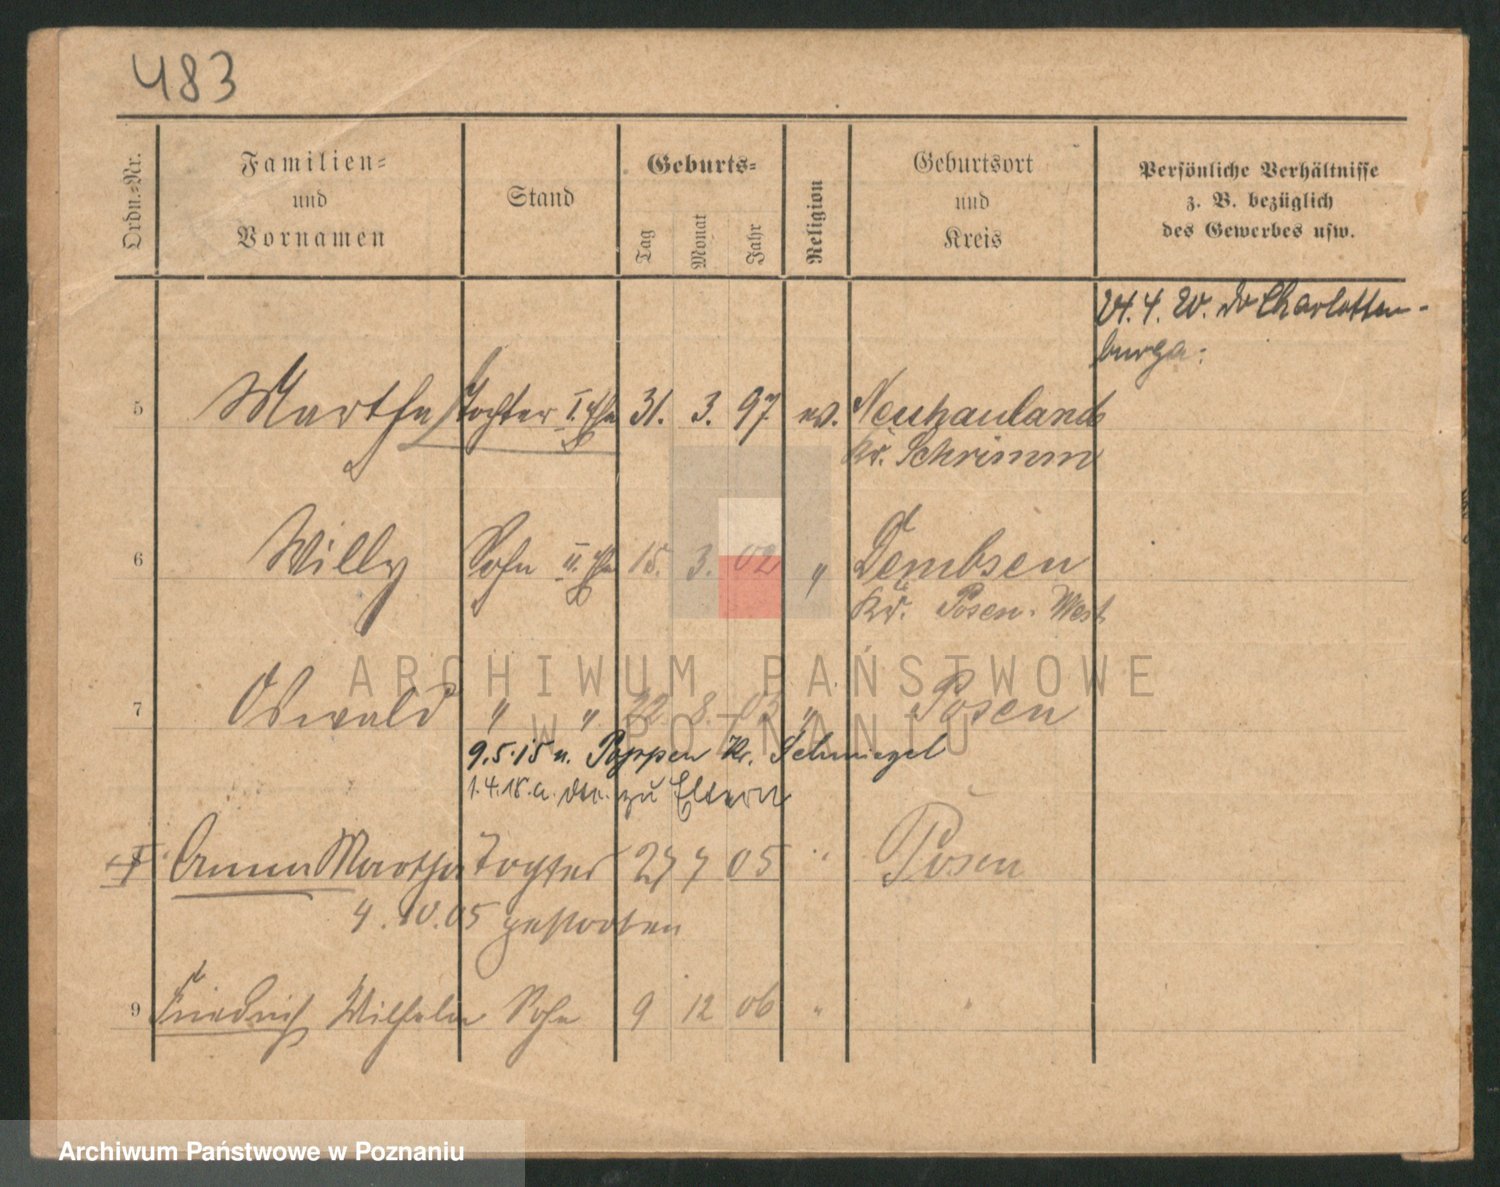 483
Ordn.-Nr.
Familien-
und
Vornamen
Stand
Geburts-
Tag
Monat
Jahr
Religion
Geburtsort
und
Kreis
Persönliche Verhältnisse
z. B. bezüglich
des Gewerbes usw.
24. 4. 20. do Charlotten-
burga.
5 Martha Tochter I. Ehe 31. 3. 97 ev. Neuhauland
Kr. Schrimm
6 Willy Sohn II. Ehe 15. 3. 02 " Dembsen
Kr. Posen-West
7 Oswald " " 22 8. 03 " Posen
9.5.15 n. Poppen Kr. Schmiegel
1.4.18. a. dto. zu Eltern
Anna Martha Tochter 27 7 05 " Posen
4.10.05 gestorben
9 Friedrich Wilhelm Sohn 9 12 06 " "
ARCHIWUM PAŃSTWOWE
W POZNANIU
Archiwum Państwowe w Poznaniu